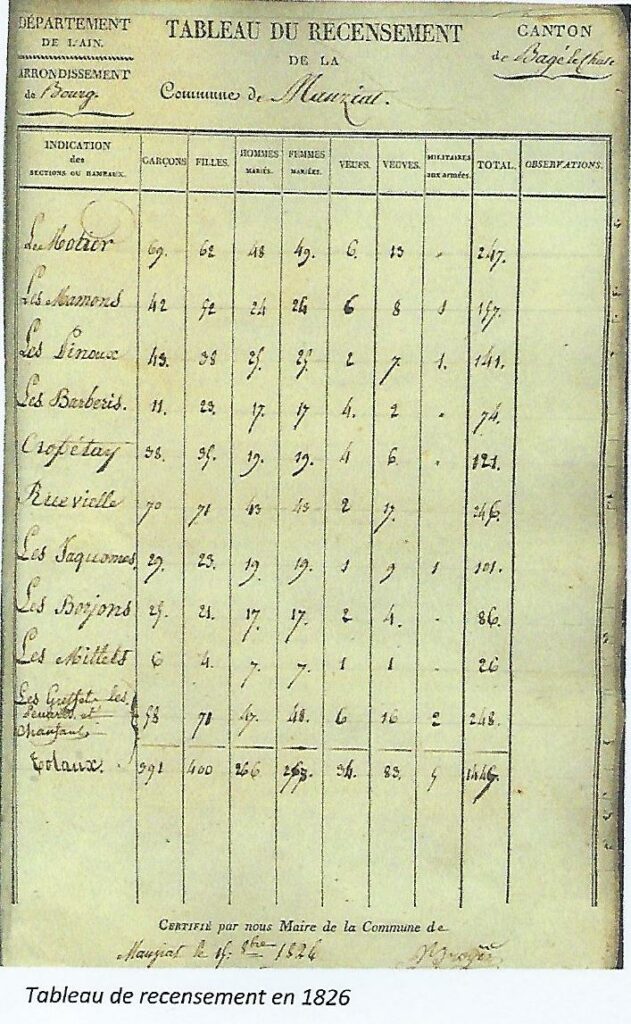 DÉPARTEMENT
DE L'AIN.
ARRONDISSEMENT
de Bourg.
TABLEAU DU RECENSEMENT
DE LA
Commune de Manziat.
CANTON
de Bagé le Chatel
INDICATION des SECTIONS OU HAMEAUX. GARÇONS FILLES. HOMMES MARIÉS. FEMMES MARIÉES. VEUFS. VEUVES. MILITAIRES aux armées. TOTAL. OBSERVATIONS.
Le Motier 69. 62 48 49. 6. 13 247.
Les Mamons 42 52 24 24 6 8 1 157.
Les Pinoux 43. 38 25. 25. 2 7. 1. 141.
Les Barberis. 11. 23. 17. 17 4. 2 74.
Cropétay 38. 35. 19. 19. 4 6. 121.
Ruevielle 70 71 43 43 2 17. 246.
Les Jaquomes. 29. 23. 19. 19. 1 9 1 101.
Les Borjons 25. 21. 17. 17. 2 4. 86.
Les Millets 6 4. 7. 7. 1 1 26
Les Greffets les
58 71 47. 48. 6 16 2 248.
Totaux. 391 400 266. 34. 83. 5 1447.
CERTIFIÉ par nous Maire de la Commune de
Manziat le 15. 8bre 1826
Tableau de recensement en 1826